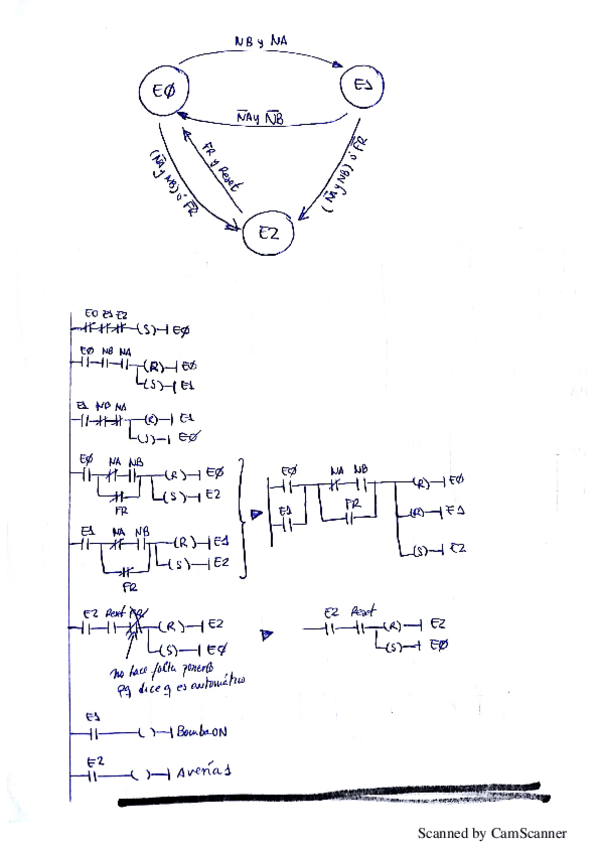 NB y NA
EØ
E1
N̅A̅ y N̅B̅
FR y Reset
(N̅A̅ y NB) ó F̅R̅
(N̅A̅ y NB) ó F̅R̅
E2
E0 E1 E2
(S) EØ
EØ NB NA
(R) EØ
(S) E1
E1 NB NA
(R) E1
(S) EØ
EØ NA NB
(R) EØ
(S) E2
FR
E1 NA NB
(R) E1
(S) E2
FR
EØ NA NB
(R) EØ
E1 FR
(R) E1
(S) E2
E2 Reset
(R) E2
(S) EØ
no hace falta ponerlo
pq dice q es automático
E2 Reset
(R) E2
(S) EØ
E1
( ) Bomba ON
E2
( ) Averías1
Scanned by CamScanner